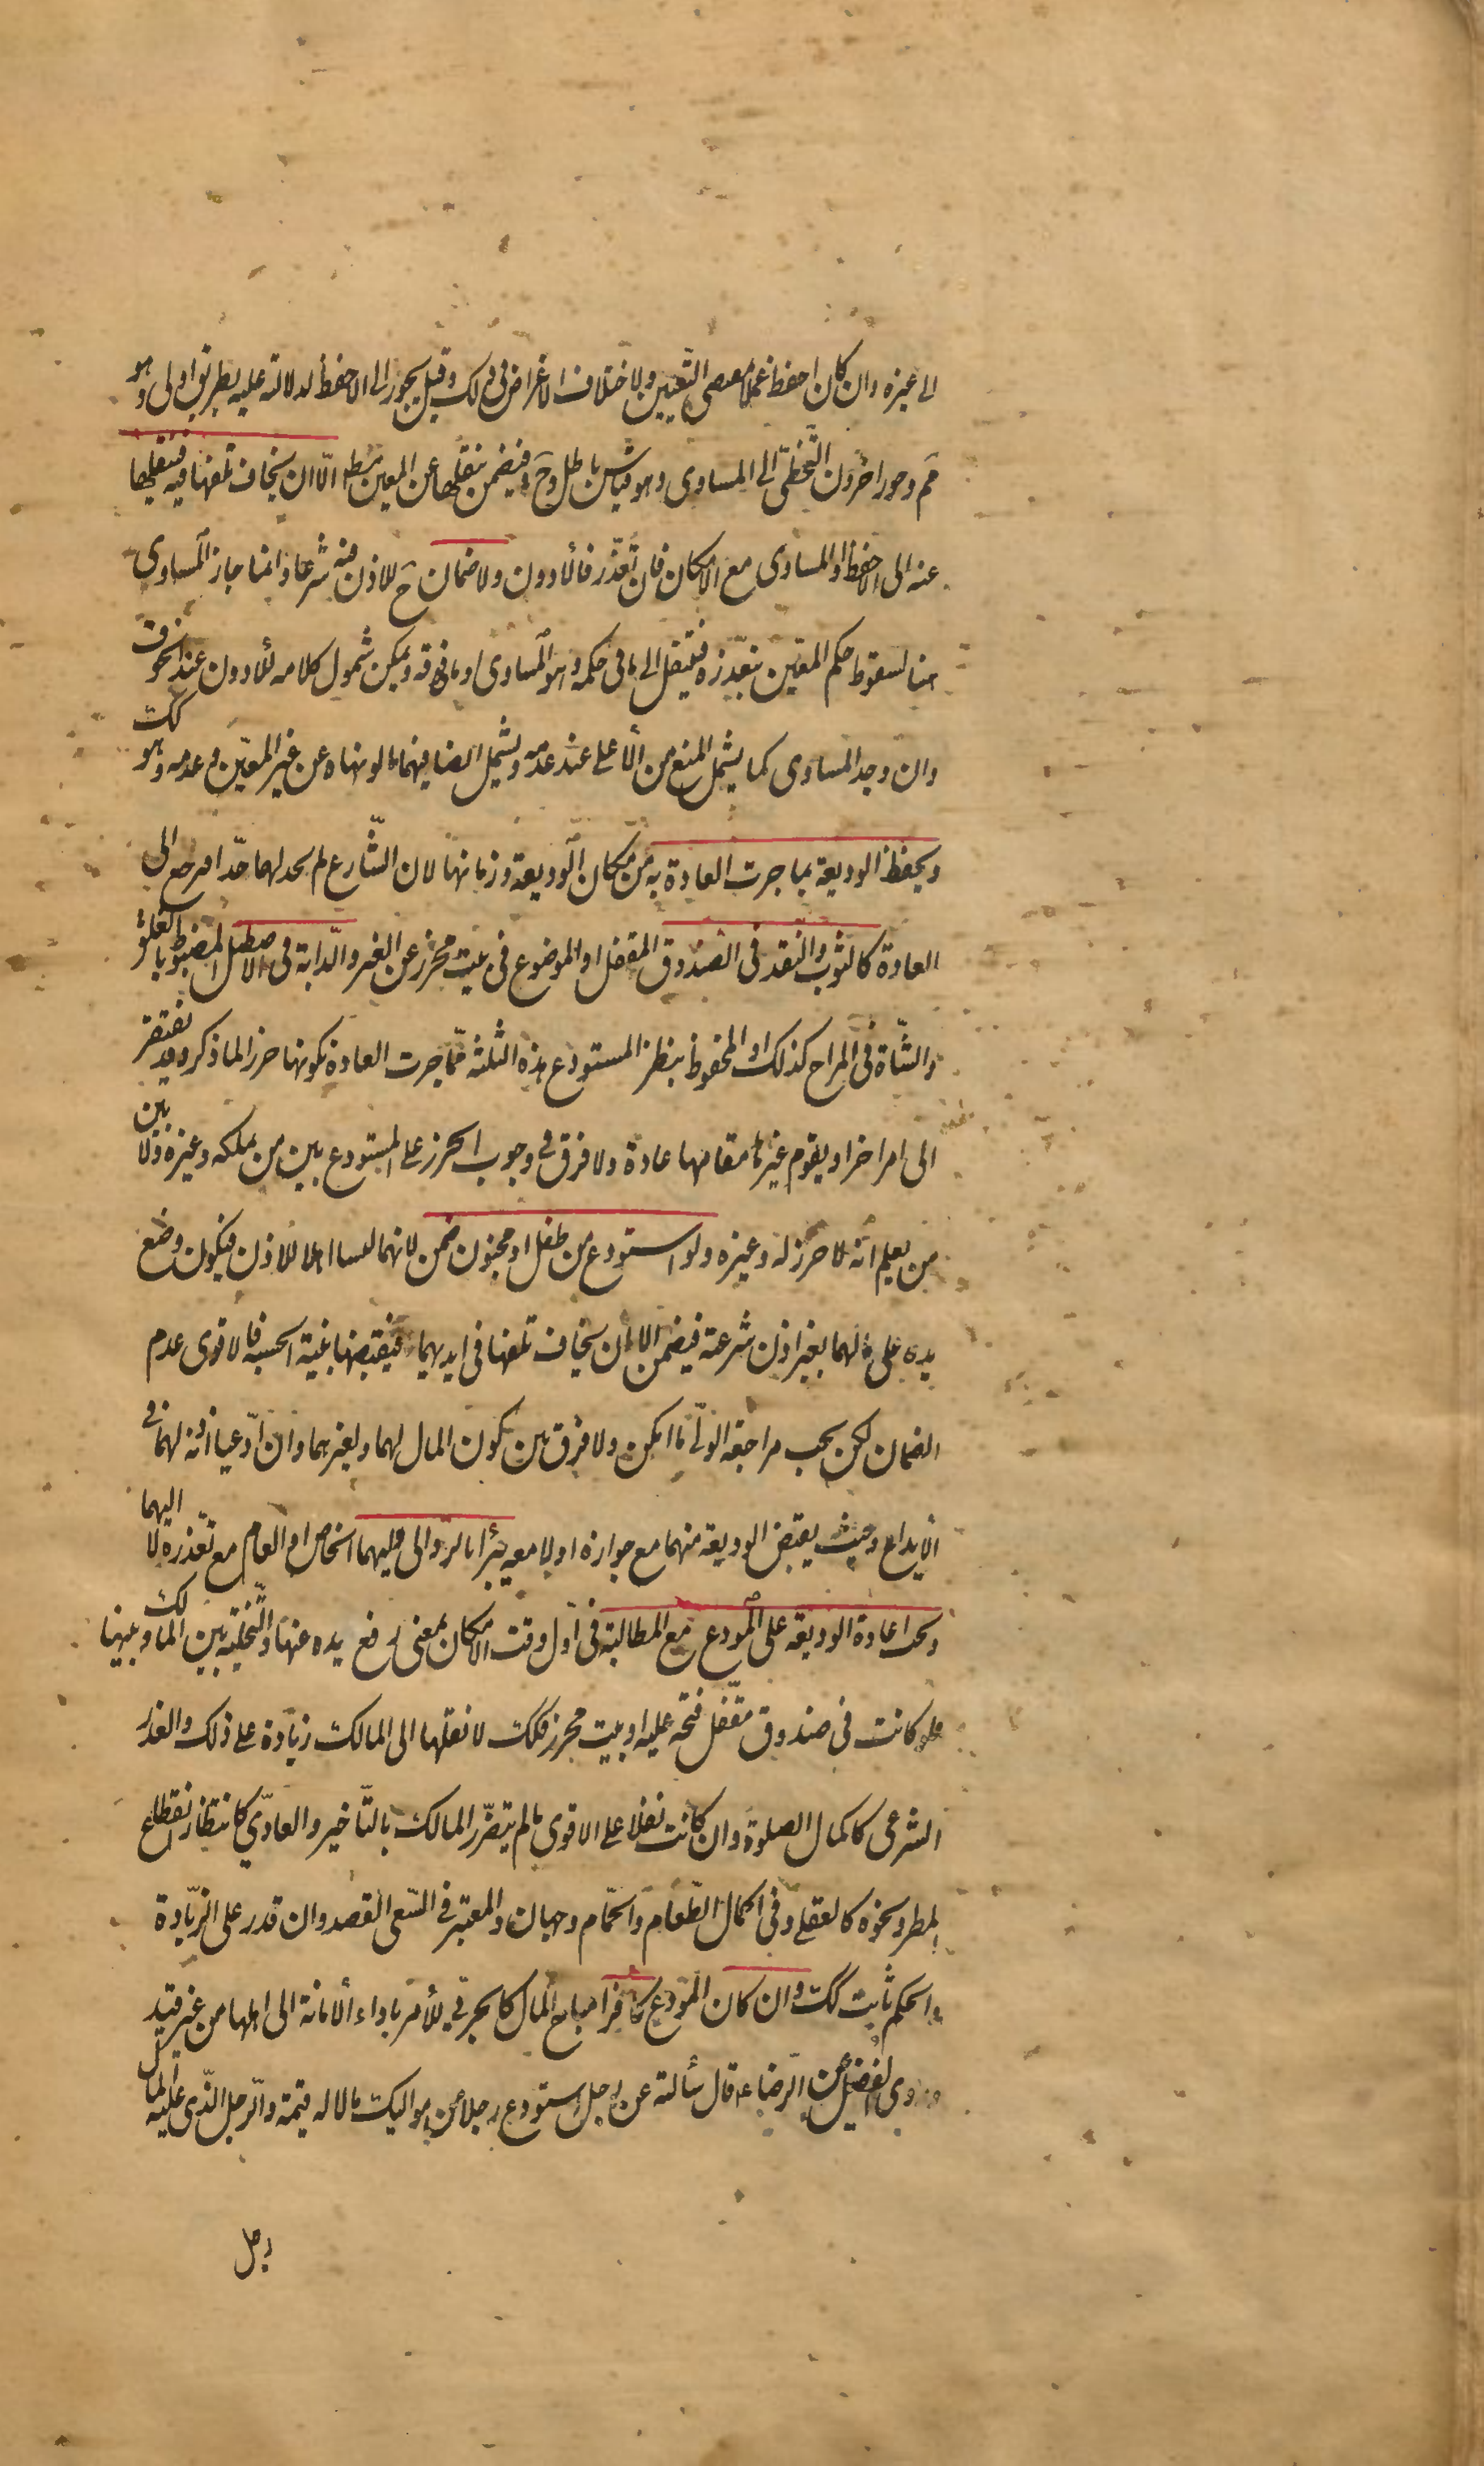 الى غيره وان كان احفظ عملا بمقتضى التعيين ولاختلاف الاغراض فى ذلك وقيل يجوز الى الاحفظ لدلالته عليه بطريق اولى وهو
مم وجوز اخرون التخطى الى المساوى وهو قياس باطل وح فيضمن بنقلها عن المعين مط الا ان يخاف تلفها فيه فينقلها
عنه الى الاحفظ او المساوى مع الامكان فان تعذر فالادون ولا ضمان ح للاذن فيه شرعا وانما جاز المساوى
هنا لسقوط حكم المعين بتعذره فينتقل الى ما فى حكمه وهو المساوى او ما فوقه ويمكن شمول كلامه للادون عند الخوف
وان وجد المساوى كما يشمل المنع من الاعلى عند عدمه ويشمل ايضا فيهما ما لو نهاه عن غير المعين وعدمه وهو كك
ويحفظ الوديعة بما جرت العادة به من مكان الوديعة وزمانها لان الشارع لم يحد لها حدا فيرجع الى
العادة كالثوب والنقد فى الصندوق المقفل او الموضوع فى بيت محرز عن الغير والدابة فى الاصطبل المضبوط بالغلق
والشاة فى المراح كذلك او المحفوظ بنظر المستودع هذه الثلثة مما جرت العادة بكونها حرزا لما ذكر وقد يفتقر
الى امر اخر او يقوم غيرها مقامها عادة ولا فرق فى وجوب الحرز على المستودع بين من يملكه وغيره ولا بين
من يعلم انه لا حرز له وغيره ولو استودع من طفل او مجنون ضمن لانهما ليسا اهلا للاذن فيكون وضع
يده على مالهما بغير اذن شرعية فيضمن الا ان يخاف تلفها فى ايديهما فيقبضها بنية الحسبة فالاقوى عدم
الضمان لكن يجب مراجعة الولى ما امكن ولا فرق بين كون المال لهما ولغيرهما وان ادعيا اذنه لهما فى
الايداع وحيث يقبض الوديعة منهما مع جوازه او لا معه يبرأ بالرد الى وليهما الخاص او العام مع تعذره لا اليهما
ويجب اعادة الوديعة على المودع مع المطالبة فى اول وقت الامكان بمعنى رفع يده عنها والتخلية بين المالك وبينها
فلو كانت فى صندوق مقفل فتحه عليه او بيت محرز فكك لا نقلها الى المالك زيادة على ذلك والعذر
الشرعى كاكمال الصلوة وان كانت نفلا على الاقوى ما لم يتضرر المالك بالتاخير والعادى كانتظار انقطاع
المطر ونحوه كالعقلى وفى اكمال الطعام والحمام وجهان والمعتبر فى السعى القصد وان قدر على الزيادة
والحكم ثابت كك وان كان المودع كافرا مباح المال كالحربى للامر باداء الامانة الى اهلها من غير قيد
وروى الفضيل عن الرضا ع قال سألته عن رجل استودع رجلا من مواليك مالا له قيمة والرجل الذى عليه المال
رجل